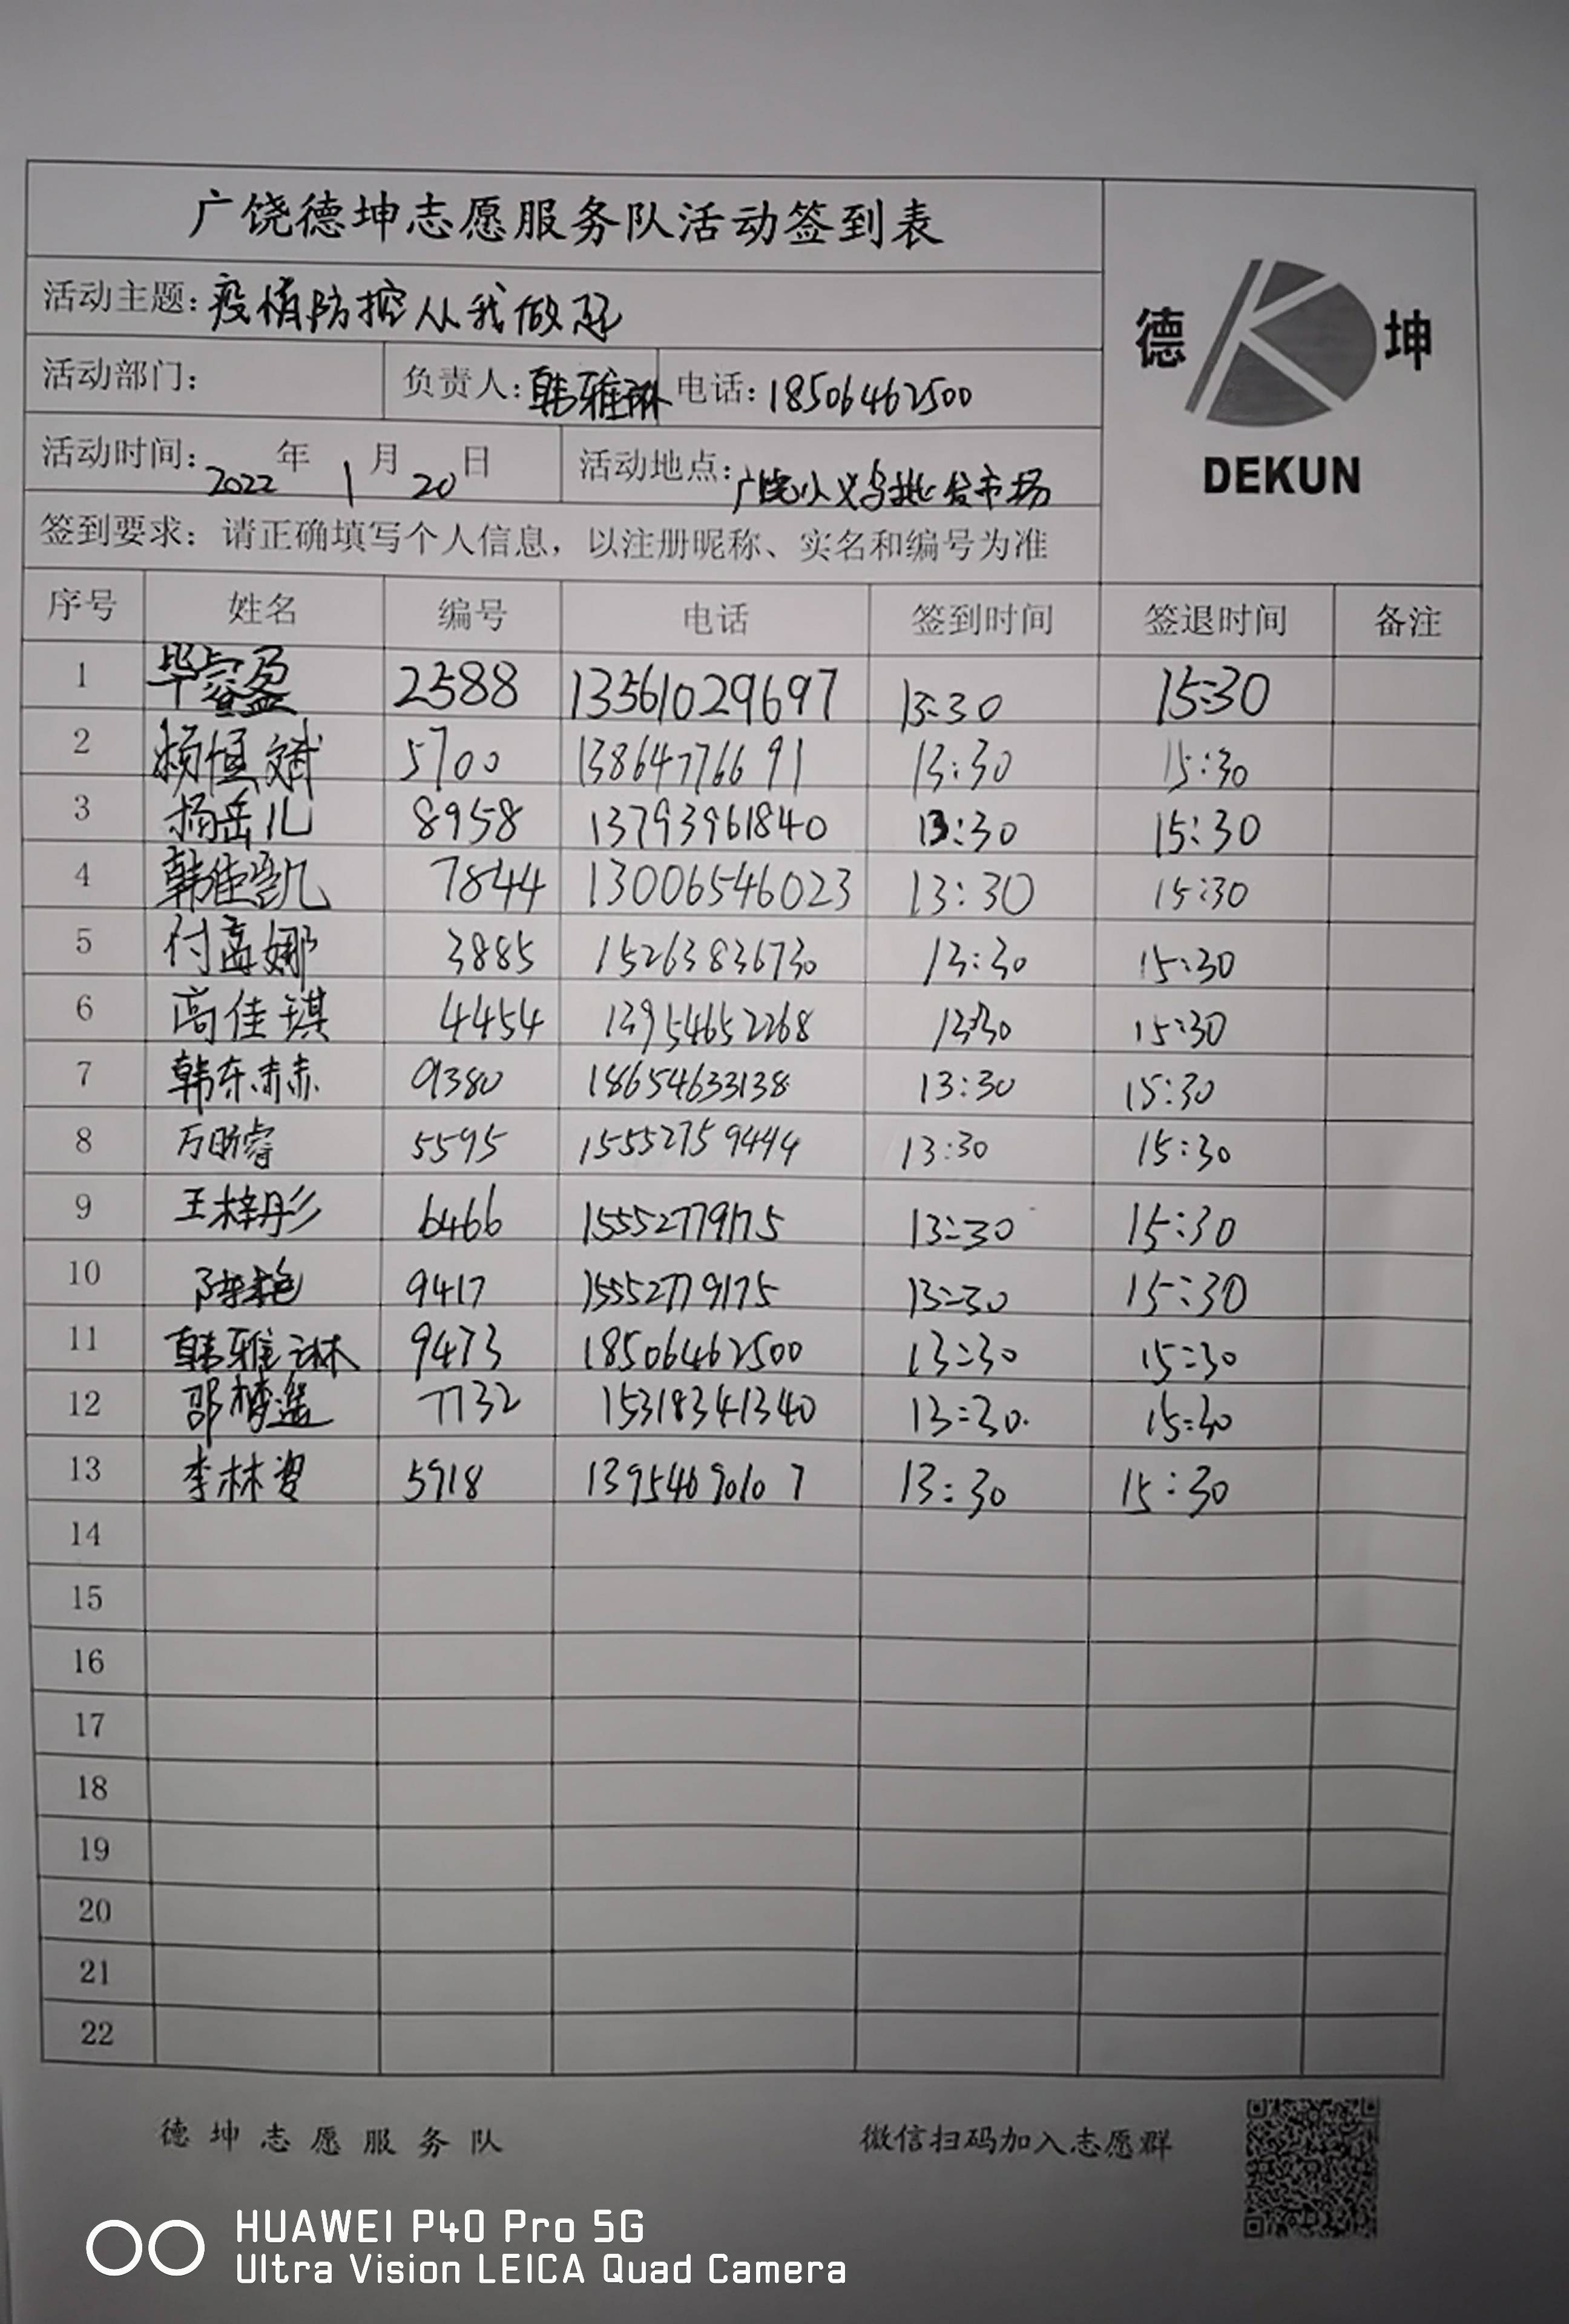 广饶德坤志愿服务队活动签到表
活动主题：疫情防控从我做起
德 坤
活动部门： 负责人：韩雅琳 电话：18506462500
活动时间：2022年1月20日 活动地点：广饶小义乌批发市场
DEKUN
签到要求：请正确填写个人信息，以注册昵称、实名和编号为准
序号 姓名 编号 电话 签到时间 签退时间 备注
1 毕容盈 2588 13561029697 13:30 15:30
2 恒斌 5700 13864776691 13:30 15:30
3 杨岳儿 8958 13793961840 13:30 15:30
4 韩佳凯 7844 13006546023 13:30 15:30
5 付孟娜 3885 15263836730 13:30 15:30
6 高佳琪 4454 13954652268 13:30 15:30
7 韩东赤赤 9380 18654633138 13:30 15:30
8 万昕睿 5595 15552759444 13:30 15:30
9 王梓彤 6466 15552779175 13:30 15:30
10 陈艳 9417 15552779175 13:30 15:30
11 韩雅琳 9473 18506462500 13:30 15:30
12 邵梦遥 7732 15318341340 13:30 15:30
13 李林 5918 13954690107 13:30 15:30
14
15
16
17
18
19
20
21
22
德坤志愿服务队 微信扫码加入志愿群
HUAWEI P40 Pro 5G
Ultra Vision LEICA Quad Camera